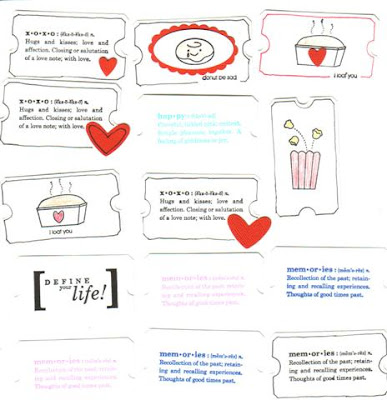 x•o•x•o : n.
Hugs and kisses; love and
affection. Closing or salutation
of a love note; with love.
donut be sad
i loaf you
x•o•x•o : n.
Hugs and kisses; love and
affection. Closing or salutation
of a love note; with love.
hap•py
i loaf you
x•o•x•o : n.
Hugs and kisses; love and
affection. Closing or salutation
of a love note; with love.
DEFINE
your life!
mem•or•ies : n.
Recollection of the past; retain-
ing and recalling experiences.
Thoughts of good times past.
mem•or•ies : n.
Recollection of the past; retain-
ing and recalling experiences.
Thoughts of good times past.
mem•or•ies : n.
Recollection of the past; retain-
ing and recalling experiences.
Thoughts of good times past.
mem•or•ies : n.
Recollection of the past; retain-
ing and recalling experiences.
Thoughts of good times past.
mem•or•ies : n.
Recollection of the past; retain-
ing and recalling experiences.
Thoughts of good times past.